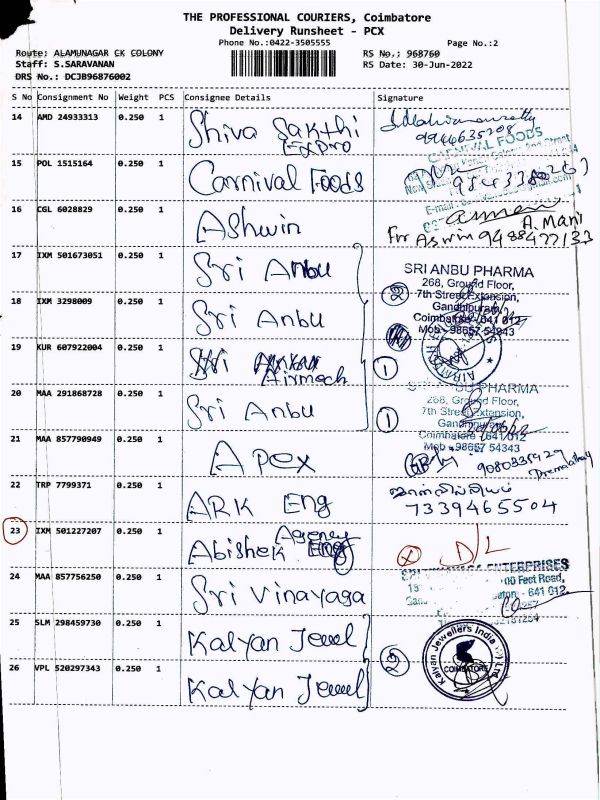 THE PROFESSIONAL COURIERS, Coimbatore
Delivery Runsheet - PCX
Phone No.:0422-3505555
Page No.:2
Route: ALAMUNAGAR CK COLONY
RS No.: 968760
Staff: S.SARAVANAN
RS Date: 30-Jun-2022
DRS No.: DCJB96876002
S No Consignment No Weight PCS Consignee Details Signature
14 AMD 24933313 0.250 1 Shiva Sakthi
Expro
9944635208
CARNIVAL FOODS
15 POL 1515164 0.250 1 Carnival Foods
16 CGL 6028829 0.250 1 Ashwin
A. Mani
For Aswin 9488477133
17 IXM 501673051 0.250 1 Sri Anbu
SRI ANBU PHARMA
268, Ground Floor,
7th Street Extension,
Gandhipuram,
Coimbatore - 641 012
Mob - 98657 54343
2
18 IXM 3298009 0.250 1 Sri Anbu
19 KUR 607922004 0.250 1 Airmech
1
20 MAA 291868728 0.250 1 Sri Anbu
1
SRI ANBU PHARMA
268, Ground Floor,
7th Street Extension,
Gandhipuram
Coimbatore - 641 012
Mob - 98657 54343
21 MAA 857790949 0.250 1 Apex
9080335929
22 TRP 7799371 0.250 1 ARK Eng
7339465504
23 IXM 501227207 0.250 1 Abishek Agency
D/L
24 MAA 857756250 0.250 1 Sri Vinayaga
ENTERPRISES
100 Feet Road,
641 012
25 SLM 298459730 0.250 1 Kalyan Jewel
2
Kalyan Jewellers India (P) Ltd
COIMBATORE
26 VPL 520297343 0.250 1 Kalyan Jewel